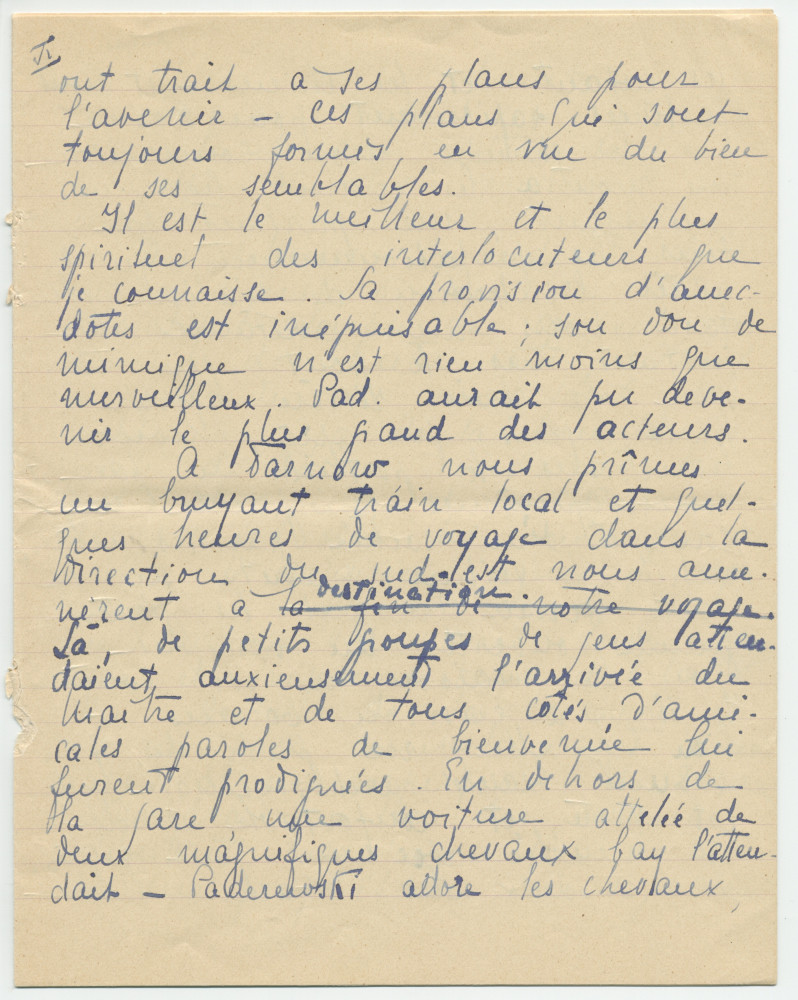 ont trait à ses plans pour
l'avenir – ces plans qui sont
toujours formés en vue du bien
de ses semblables.
Il est le meilleur et le plus
spirituel des interlocuteurs que
je connaisse. Sa provision d'anec-
dotes est inépuisable; son don de
mimique n'est rien moins que
merveilleux. Pad. aurait pu deve-
nir le plus grand des acteurs.
A Tarnow nous prîmes
un bruyant train local et quel-
ques heures de voyage dans la
direction du sud-est nous ame-
destination.
nèrent à la fin de notre voyage.
Là, de petits groupes de gens atten-
daient anxieusement l'arrivée du
Maître et de tous côtés d'ami-
cales paroles de bienvenue lui
furent prodiguées. En dehors de
la gare une voiture attelée de
deux magnifiques chevaux bay l'atten-
dait – Paderewski adore les chevaux